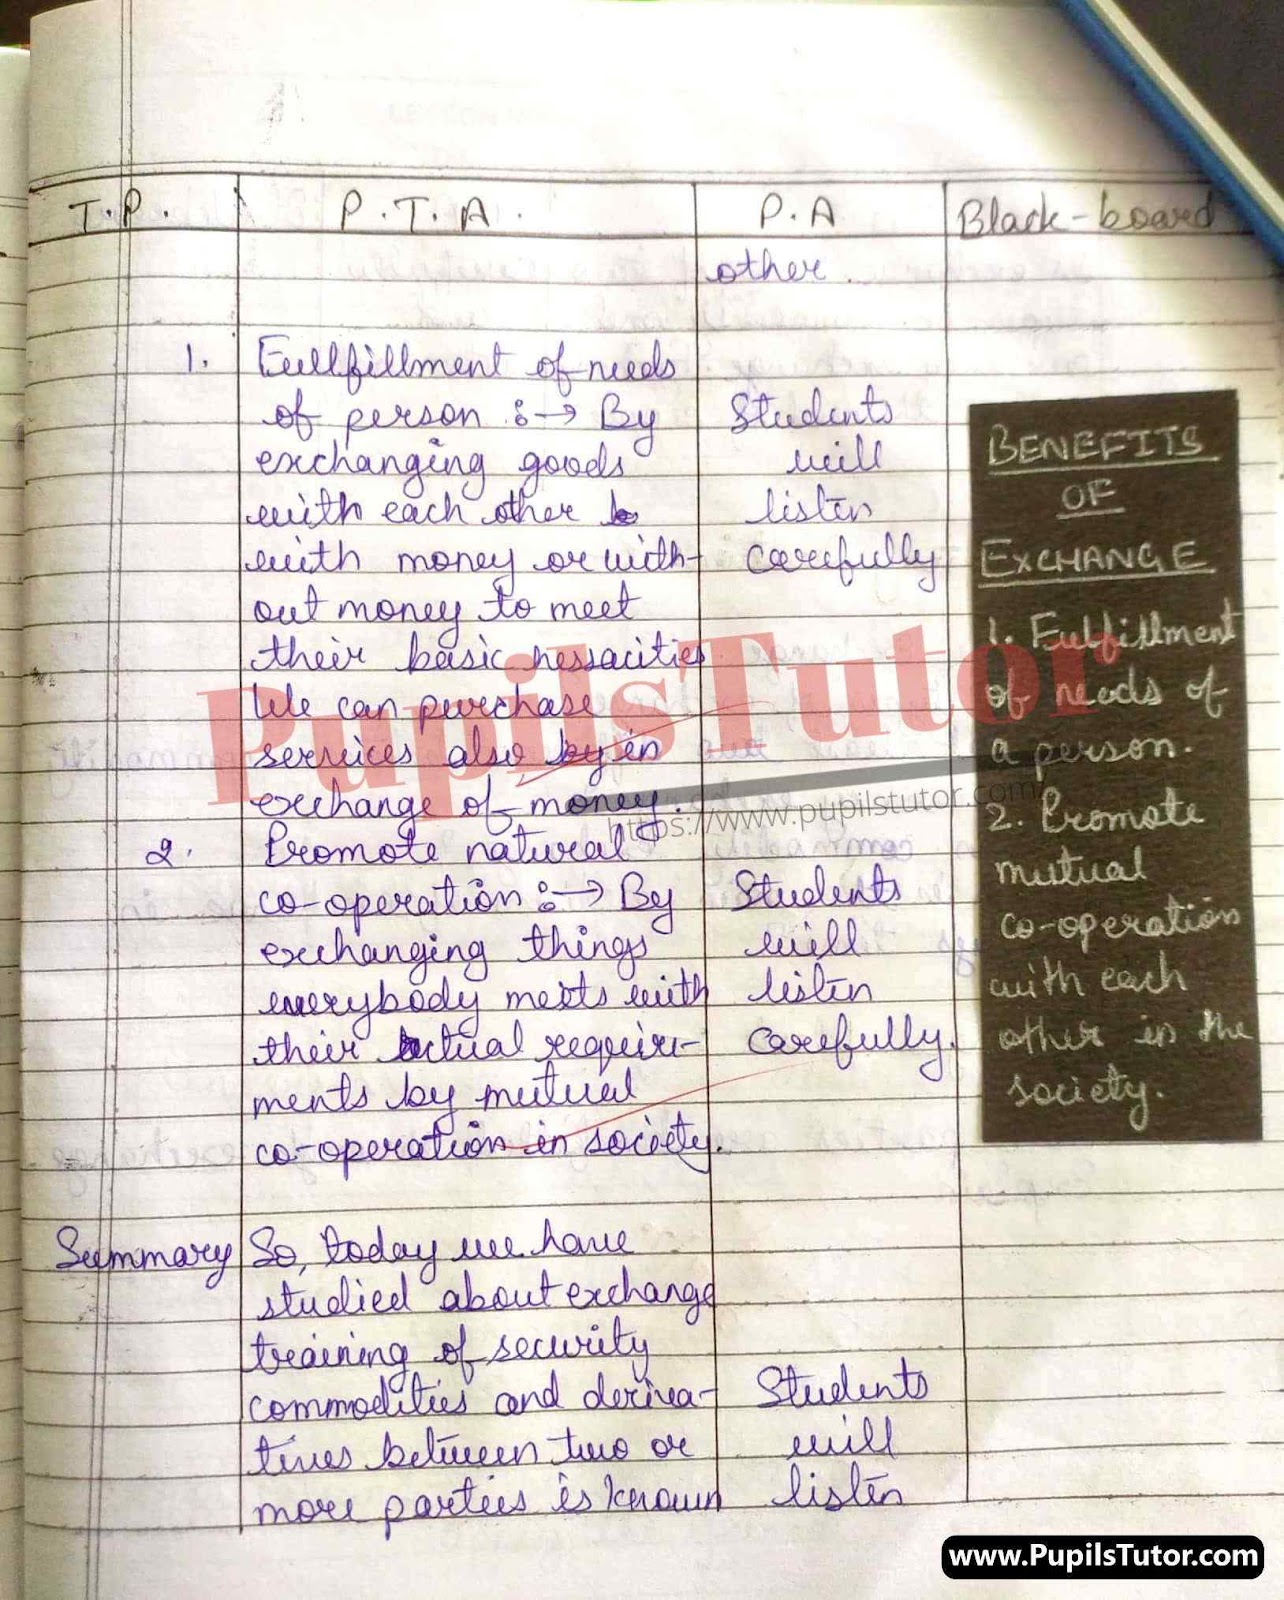 T.P. P.T.A. P.A Black-board
other.
1. Fullfillment of needs
of person :→ By
exchanging goods
with each other
with money or with-
out money to meet
their basic nessacities
We can purchase
services also by in
exchange of money.
Students
will
listen
carefully
2. Promote natural
co-operation :→ By
exchanging things
everybody meets with
their actual requir-
ments by mutual
co-operation in society.
Students
will
listen
carefully.
BENEFITS
OF
EXCHANGE
1. Fulfillment
of needs of
a person.
2. Promote
mutual
co-operation
with each
other in the
society.
Summary So, today we have
studied about exchange
training of security
commodities and deriva-
tives between two or
more parties is known
Students
will
listen
PupilsTutor
https://www.pupilstutor.com/
www.PupilsTutor.com